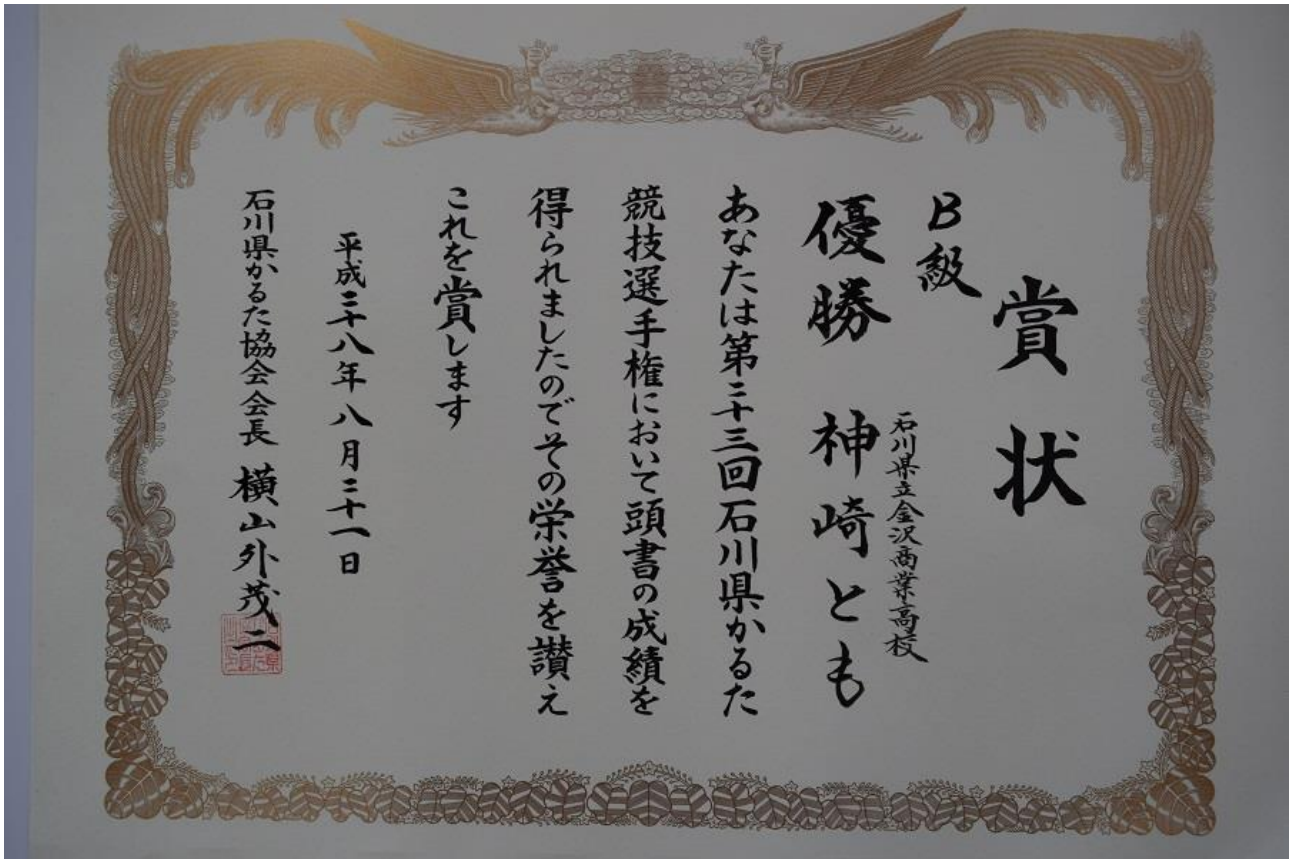 賞状
B級
石川県立金沢商業高校
優勝 神崎とも
あなたは第二十三回石川県かるた
競技選手権において頭書の成績を
得られましたのでその栄誉を讃え
これを賞します
平成二十八年八月二十一日
石川県かるた協会会長 横山外茂二